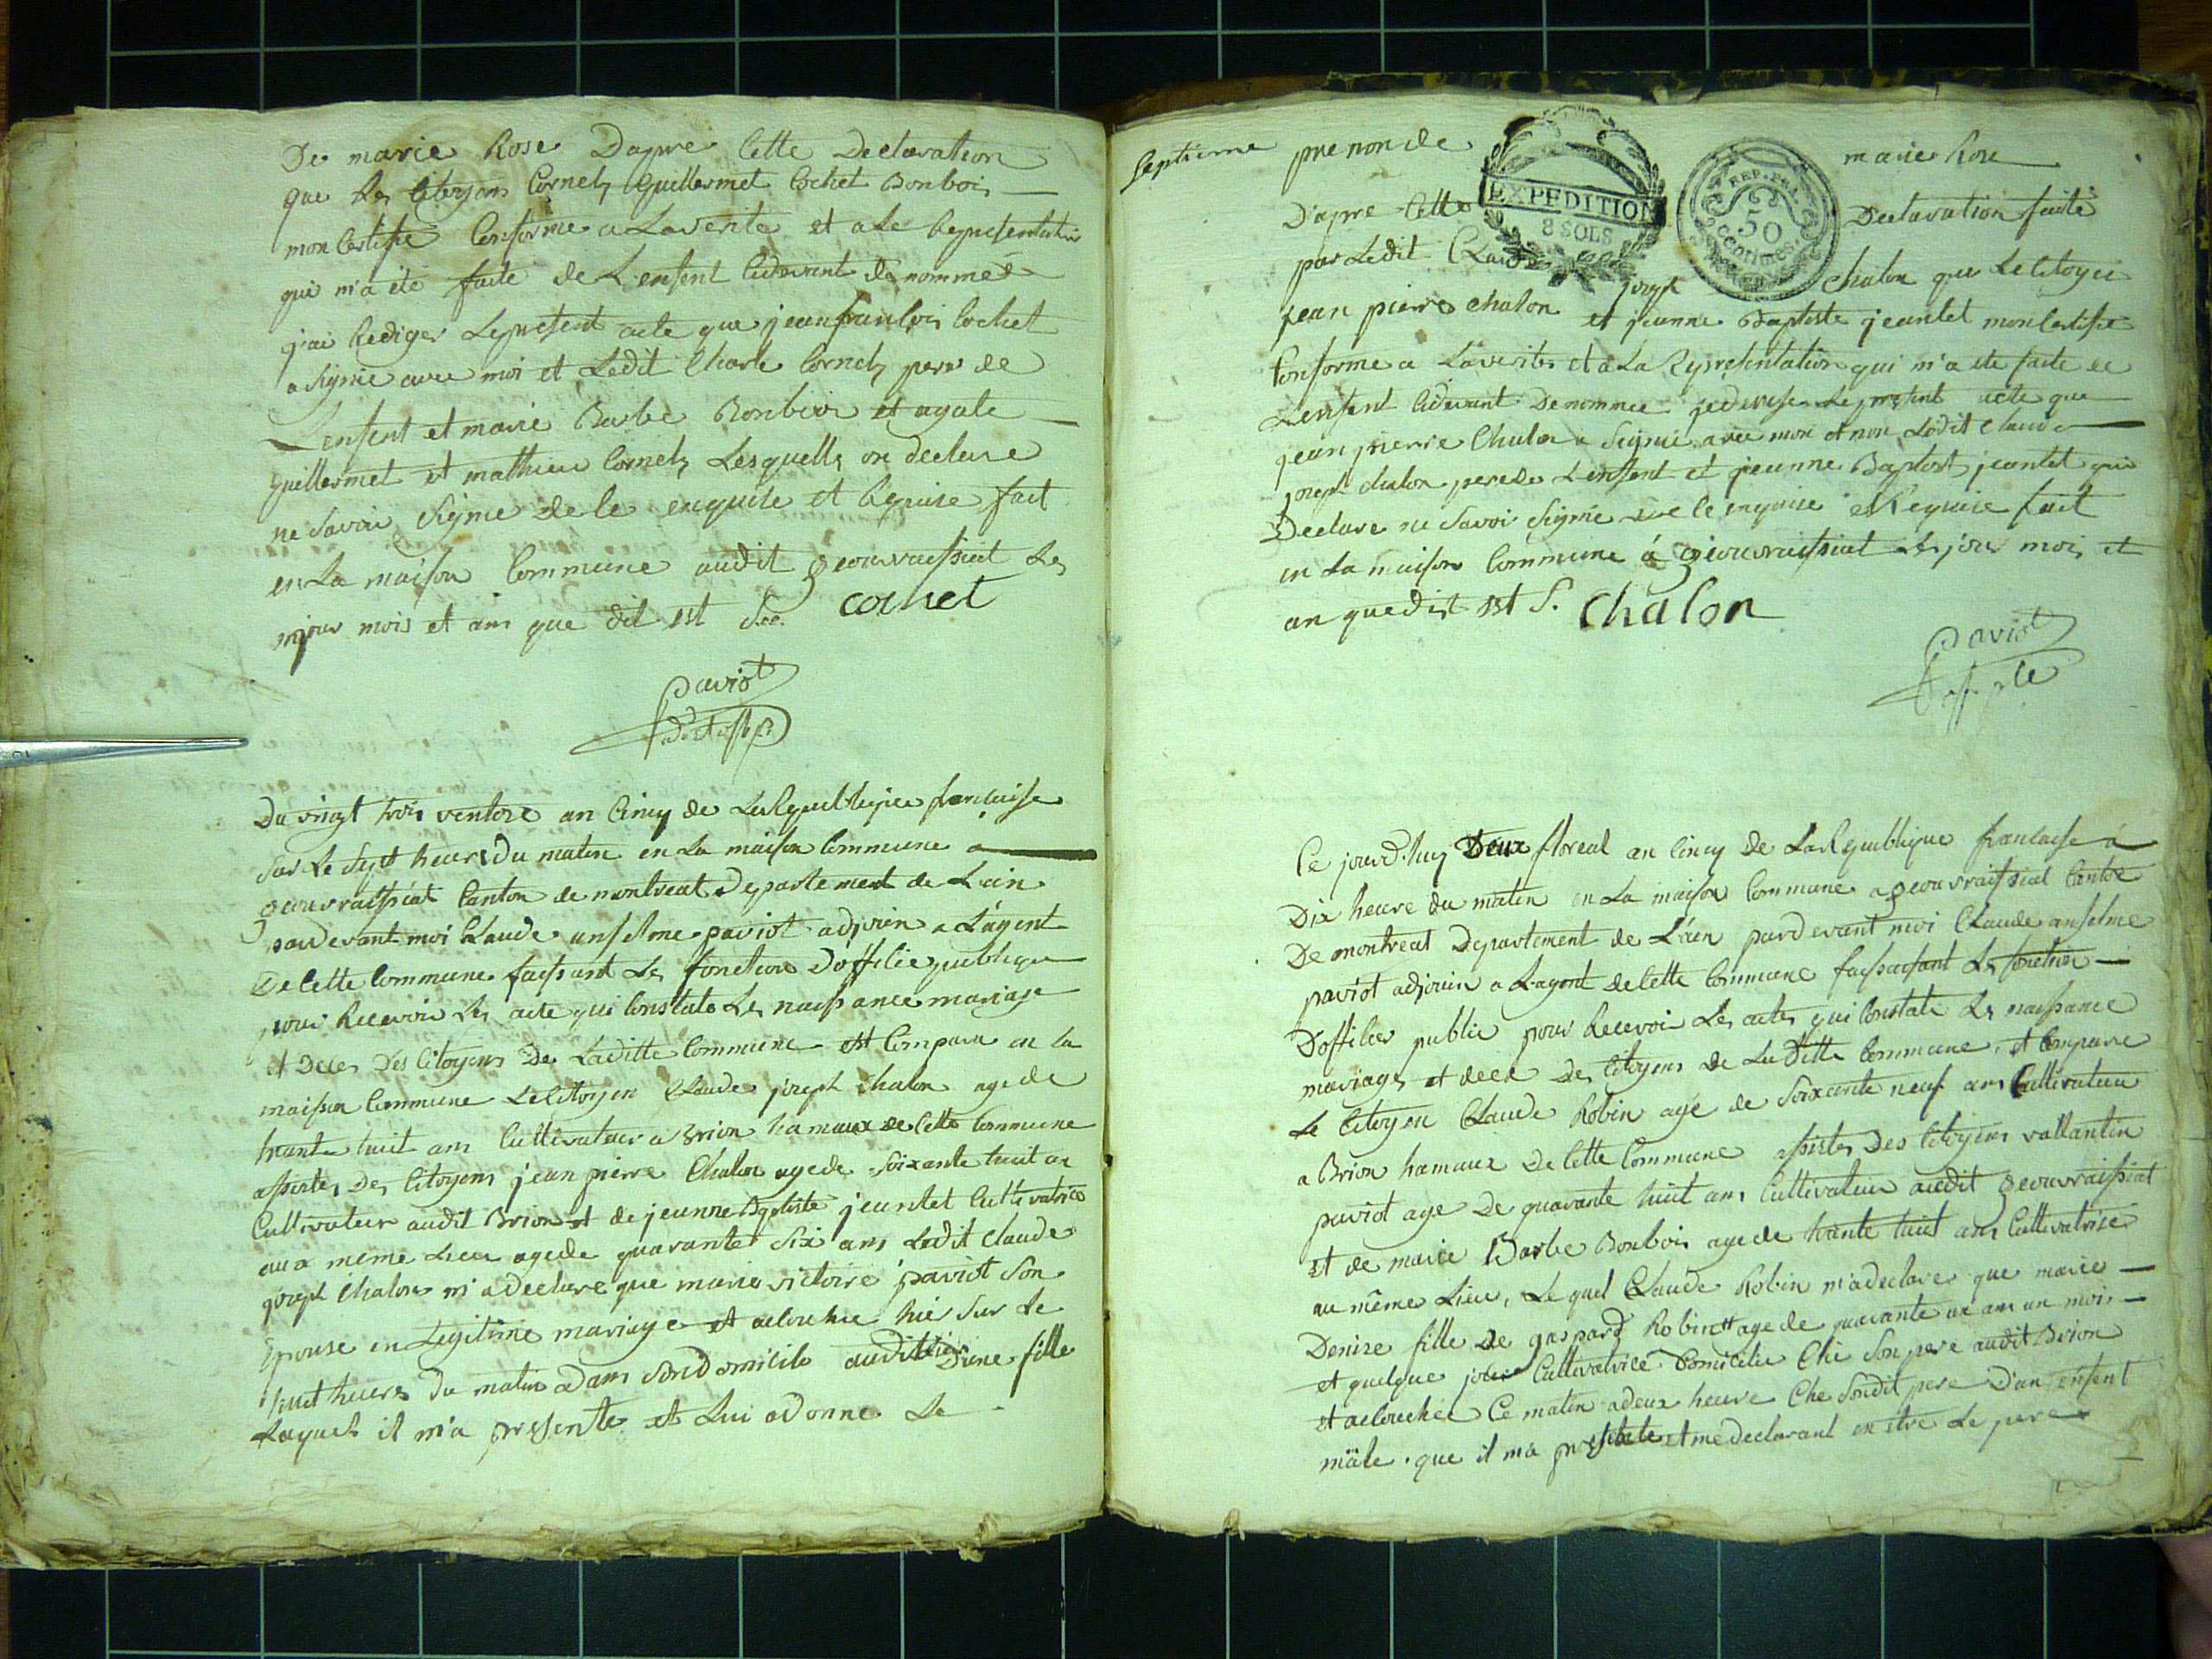 De marie Rose Dapre Cette Declaration
que Les Citoyens Cornely Guillermet Cochet Bonbois
mon Certifie Conforme a La verite et a Le Representation
qui m'a ete faite de L'enfent Cidevant De nommé
j'ai Rediger Le present acte que jean francois Cochet
a Signie avec moi et Ledit Charle Cornely pere de
L'enfent et marie Barbe Bonbois et agate
guillermet et mathieu Cornely Lesquelles on declare
ne Savoir Signie de le enquise et Requise fait
en La maison Commune audit geouvraissiat Les
jour mois et ans que dit est
cochet
paviot
Du vingt trois ventose an Cinq de La Republique francaise
Sur Le Sept heures du matin en La maison Commune a
geouvraissiat Canton de montreal Departement de L'ain
pardevant moi Claude anselme paviot adjoin a L'agent
De Cette Commune faissant Les fonction D'officie publique
pour Recevoir Les acte qui Constate Les naissance mariage
et Deces Des Citoyens De Laditte Commune est Comparu en La
maison Commune Le Citoyen Claude joseph Chalon age de
trante huit ans Cultivateur a Brion hamaux de Cette Commune
assistes Des Citoyens jean pierre Chalon age de Soixante huit an
Cultivateur audit Brion et de jeanne Baptiste jeantet Cultivatrice
au a meme Lieu age de quarante Six ans Ledit Claude
joseph Chalon m'a declare que marie victoire paviot Son
Epouse en Legitime mariage est acouchee hier Sur Le
huit heures du matin dans Son domicile audit D'une fille
Laquel il m'a presente et Lui a donne Le
Septieme
prenon de marie Rose
D'apre Cette Declaration faite
par Ledit Claude joseph Chalon que Le Citoyen
jean pierre Chalon et jeanne Baptiste jeantet mon Certifie
Conforme a La verites et a La Representation qui m'a ete faite de
L'enfent Cidevant Denommee je dresse Le present acte que
jean pierre Chalon a Signie avec moi et non Ledit Claude
joseph chalon pere de L'enfent et jeanne Baptist jeantet qui
Declare ne Savoi Signie de le enquise et Requise fait
en La maison Commune á geouvraissiat Les jour mois et
an que dit est S. Chalon
paviot
EXPEDITION
8 SOLS
REP. FRA.
50
centimes.
Ce jourd'huy Deux floreal an Cinq de La Republique francaise á
Dix heure du matin en La maison Commune a geouvraissiat Canton
De montreal Departement de L'ain pardevant moi Claude anselme
paviot adjoin a L'agent de Cette Commune faissaisant Les fonction
D'officier public pour Recevoir Les actes qui Constate Les naissance
mariages et deces Des Citoyens de La ditte Commune, est Comparu
Le Citoyen Claude Robin agé de Soixante neuf ans Cultivateur
a Brion hamaux De Cette Commune assistes Des Citoyens vallantin
paviot age De quarante huit ans Cultivateur audit geouvraissiat
et de marie Barbe Bonbois age de trante huit ans Cultivatrice
au même Lieu, Le quel Claude Robin m'a declare que marie
Denize fille de gaspard Robin age de quarante un ans un mois
et quelque jour Cultivatrice Domicilie Ché Son pere audit Brion
et acouchee Ce matin a deux heure Che Sondit pere D'un enfent
mäle. que il m'a presente et me declarant en etre Le pere